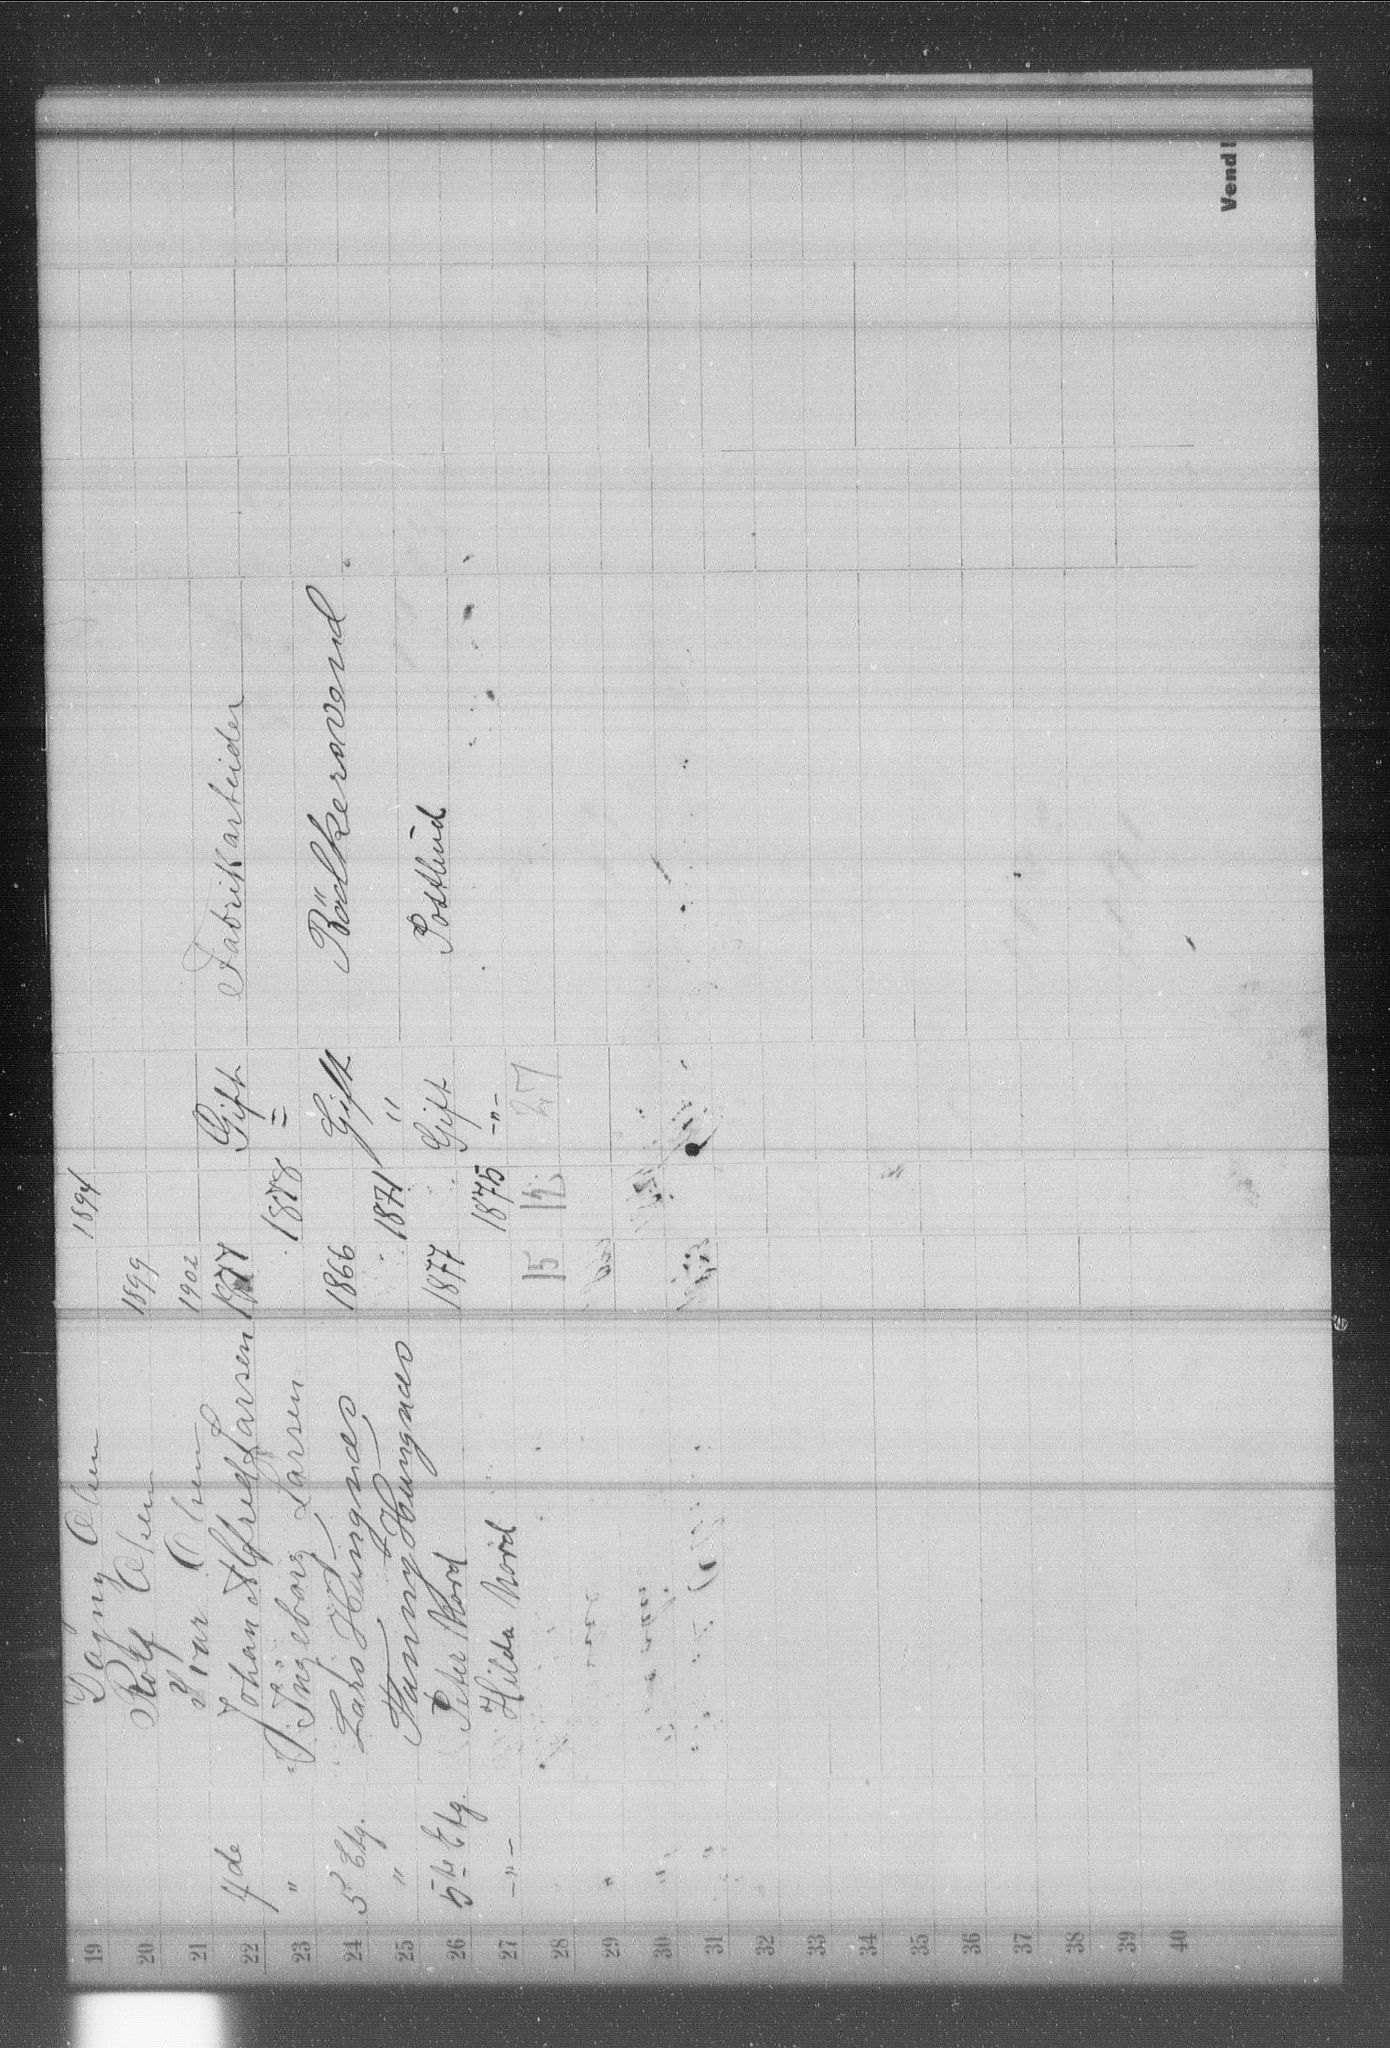 19 Dagny Olsen 1894
20 Rolf Olsen 1899
21 Ivar Olsen 1902
22 4de Johan Alfred Larsen 1877 Gift Fabrikarbeider
23 " Ingeborg Larsen 1878 "
24 5 Etg. Lars Haugnæs 1866 Gift Bödkersvend
25 " Fanny Haugnæs 1871 "
26 5te Etg. Peter Nord 1877 Gift Postbud
27 -"- Hilda Nord 1875 -"-
28 15 12 27
29
30
31
32
33
34
35
36
37
38
39
40
Vend!